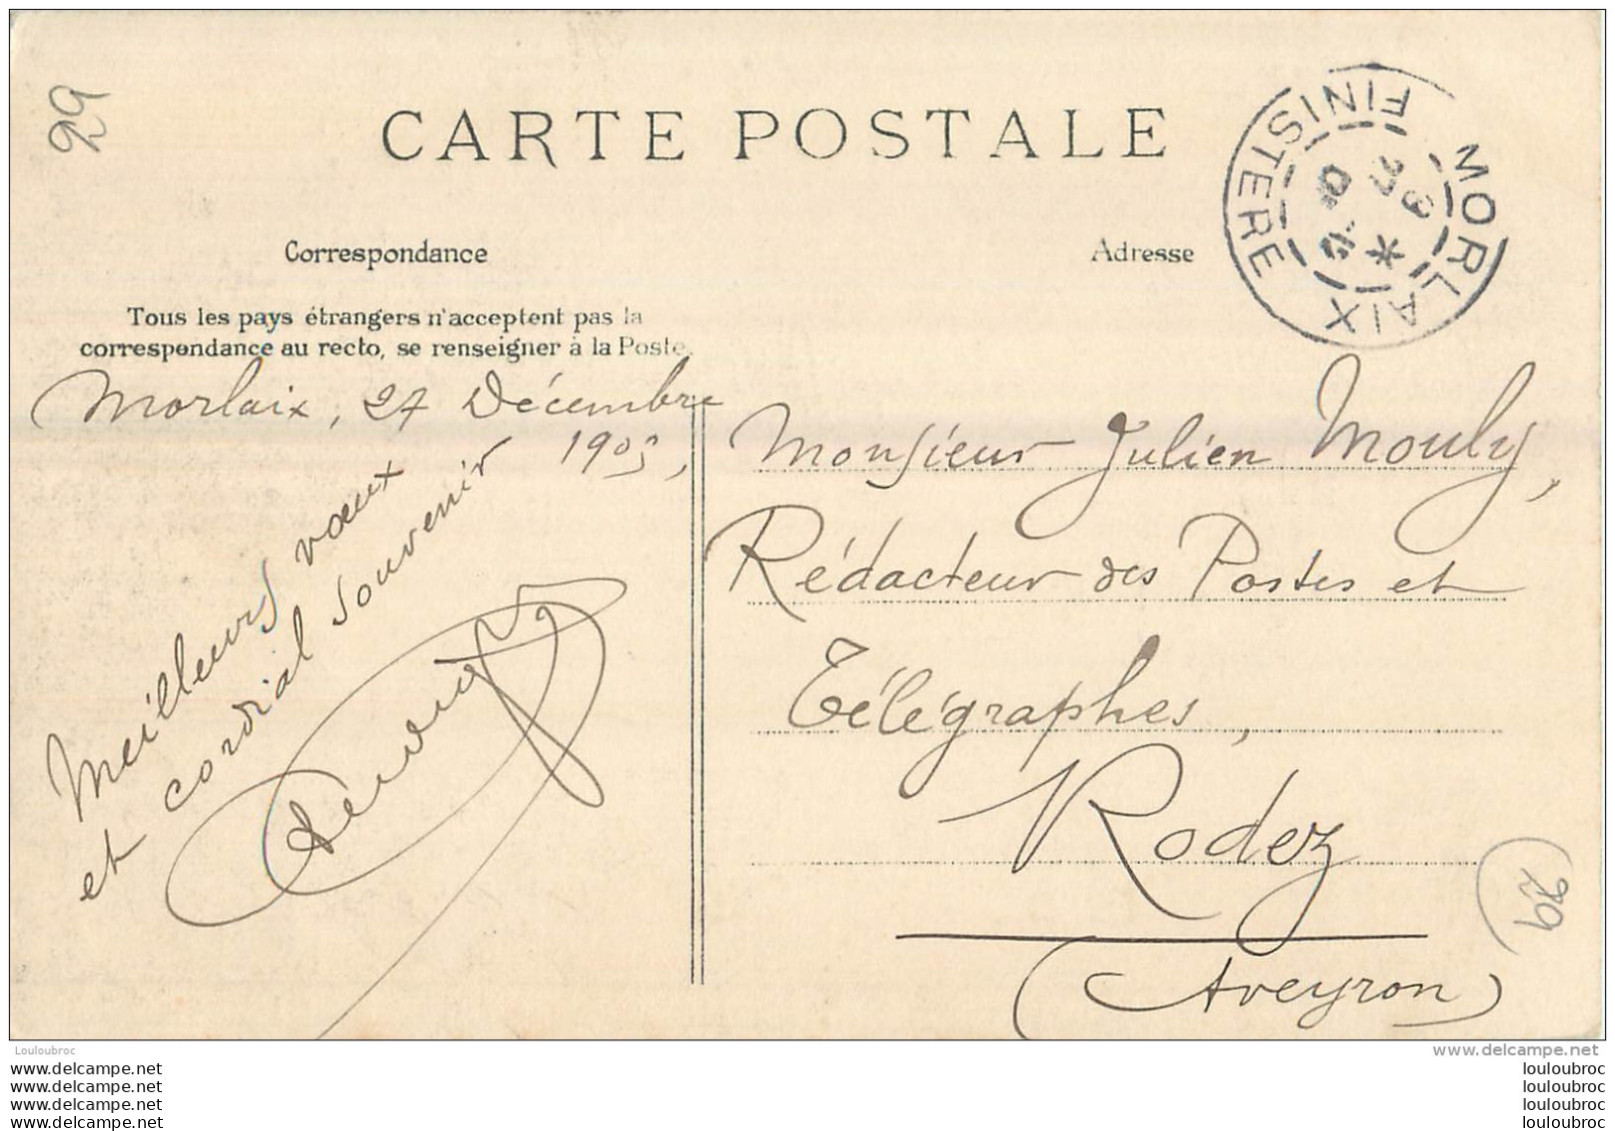 29
CARTE POSTALE
MORLAIX
FINISTERE
Correspondance
Adresse
Tous les pays étrangers n'acceptent pas la
correspondance au recto, se renseigner à la Poste.
Morlaix, 27 Décembre
1903,
Meilleurs vœux
et cordial souvenir
Monsieur Julien Mouly,
Rédacteur des Postes et
Télégraphes,
Rodez
(Aveyron)
29
Louloubroc
www.delcampe.net
www.delcampe.net
www.delcampe.net
www.delcampe.net
www.delcampe.net
louloubroc
louloubroc
louloubroc
louloubroc